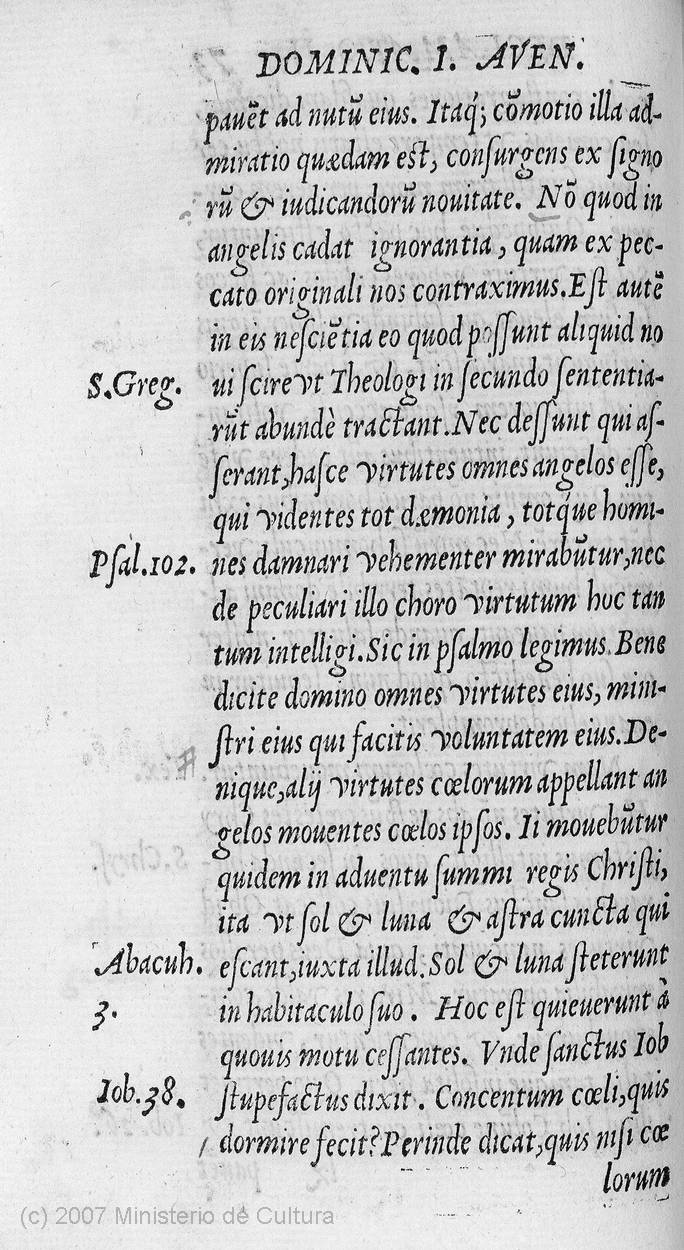 DOMINIC. I. AVEN.
pauẽt ad nutũ eius. Itaq́; cõmotio illa ad-
miratio quædam est, consurgens ex signo
rũ & iudicandorũ nouitate. Nõ quod in
angelis cadat ignorantia, quam ex pec-
cato originali nos contraximus. Est autẽ
in eis nesciẽtia eo quod possunt aliquid no
S. Greg.
ui scire vt Theologi in secundo sententia-
rũt abundè tractant. Nec dessunt qui as-
serant, hasce virtutes omnes angelos esse,
qui videntes tot dæmonia, totq́ue homi-
Psal. 102.
nes damnari vehementer mirabũtur, nec
de peculiari illo choro virtutum hoc tan
tum intelligi. Sic in psalmo legimus. Bene
dicite domino omnes virtutes eius, mini-
stri eius qui facitis voluntatem eius. De-
nique, alij virtutes cœlorum appellant an
gelos mouentes cœlos ipsos. Ii mouebũtur
quidem in aduentu summi regis Christi,
ita vt sol & luna & astra cuncta qui
Abacuh.
escant, iuxta illud. Sol & luna steterunt
3.
in habitaculo suo. Hoc est quieuerunt à
quouis motu cessantes. Vnde sanctus Iob
Iob. 38.
stupefactus dixit. Concentum cœli, quis
dormire fecit? Perinde dicat, quis nisi cœ
lorum
(c) 2007 Ministerio de Cultura